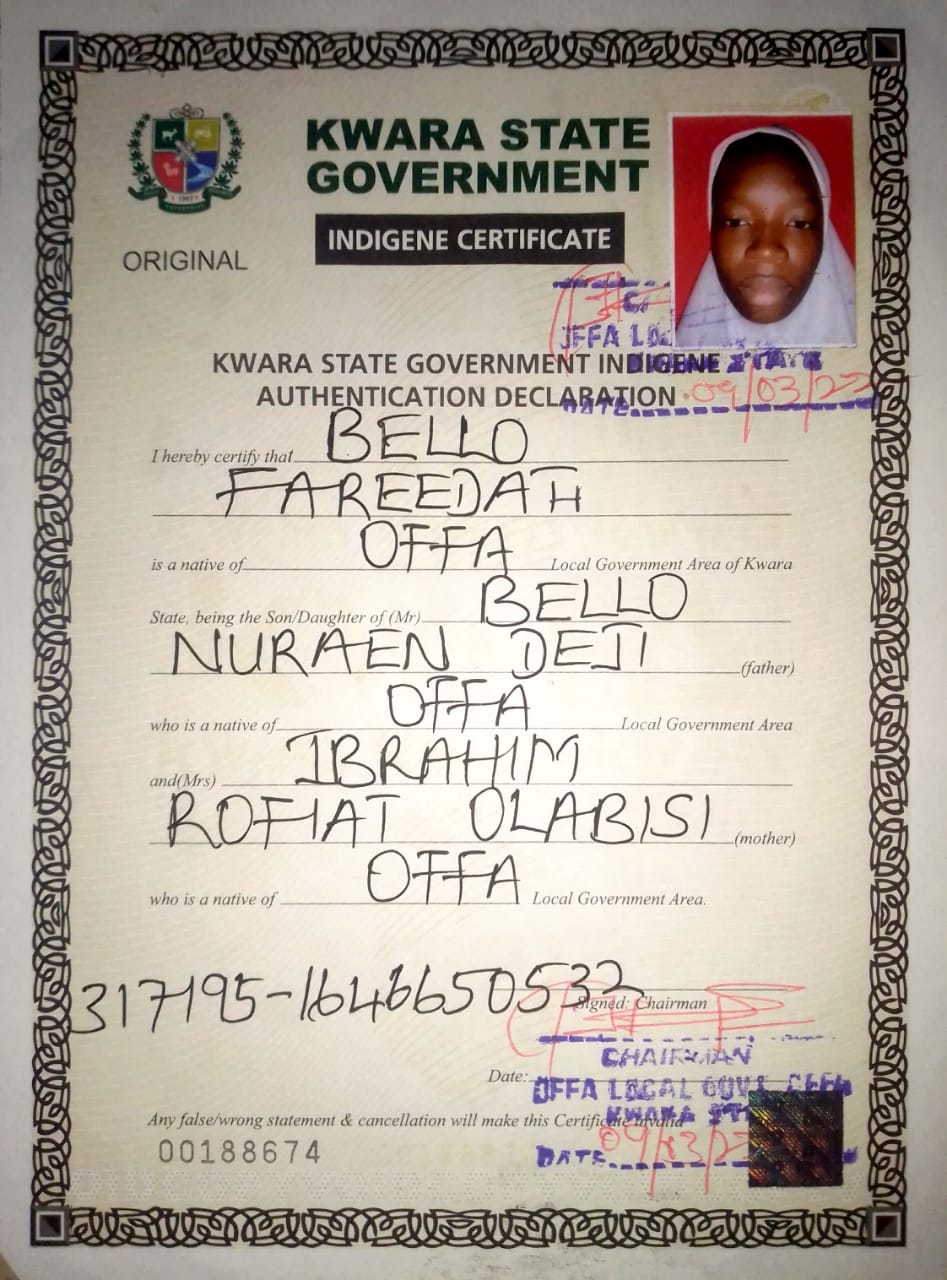 KWARA STATE
GOVERNMENT
INDIGENE CERTIFICATE
ORIGINAL
OFFA
STATE
KWARA STATE GOVERNMENT INDIGENE
AUTHENTICATION DECLARATION
DATE 09/03/22
I hereby certify that BELLO
FAREEDAH
is a native of OFFA Local Government Area of Kwara
State, being the Son/Daughter of (Mr) BELLO
NURAEN DEJI (father)
who is a native of OFFA Local Government Area
and(Mrs) IBRAHIM
ROFIAT OLABISI (mother)
who is a native of OFFA Local Government Area.
317195-1646650532
Signed: Chairman
CHAIRMAN
Date:
OFFA LOCAL GOVT. OFFA
KWARA
Any false/wrong statement & cancellation will make this Certificate invalid
DATE
00188674